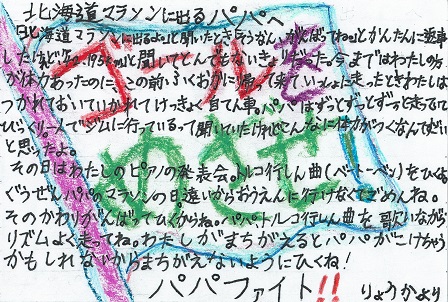 北海道マラソンに出るパパへ
「北海道マラソンに出るよ。」と聞いたときそうなんだがんばってね。とかんたんに返事
したけど42.195km と聞いてとんでもないきょりだった。今まではわたしの
がはやかったのに、この前ふくおかに帰って来ていっしょに走ったときわたしは
つかれておいていかれてけっきょく自てん車。パパはずっとずっとずっと走っていて
びっくり。一人でジムに行っているって聞いていたけれどこんなに体力がつくなんてすごい
と思ったよ。
その日はわたしのピアノの発表会。トルコ行しん曲(ベートーベン)をひくよ。
ぐうぜんパパのマラソンの日。遠いからおうえんに行けなくてごめんね。
そのかわりがんばってひくからね。パパもトルコ行しん曲を歌いながら
リズムよく走ってね。わたしがまちがえるとパパがこけちゃう
かもしれないからまちがえないようにひくね!
パパファイト!!
りょうかより
ゴールを
めざせ